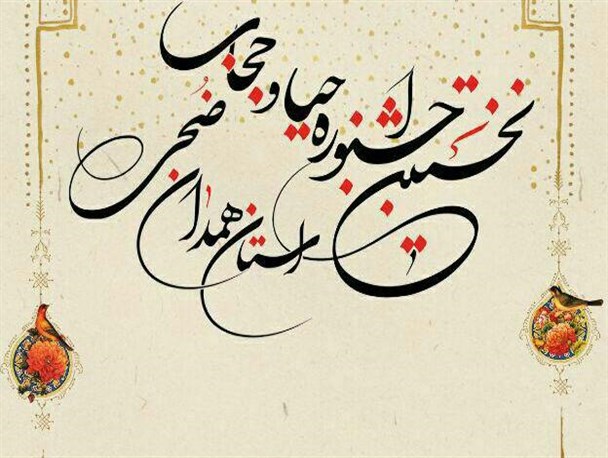 نخستین جشنواره حیا و حجاب
ضحی
استان همدان